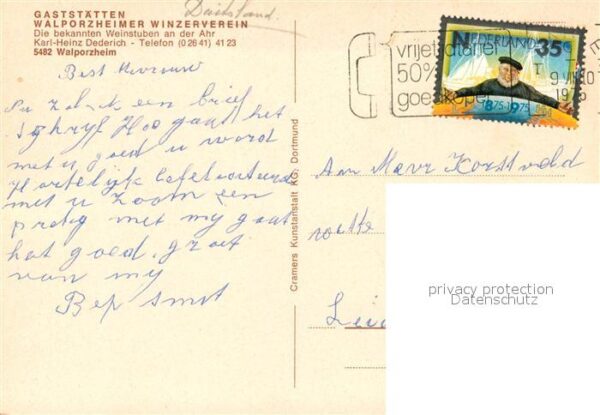 Duitsland.
GASTSTÄTTEN
WALPORZHEIMER WINZERVEREIN
Die bekannten Weinstuben an der Ahr
Karl-Heinz Dederich - Telefon (0 26 41) 41 23
5482 Walporzheim
Best Mevrouw
Nu zal ik een brief
Schryf Hoe gaat het
met u goed u word
Hartelijk gefeliciteerd
met u zoom een
prettig met my gaat
hat goed groet
van my
Bep Smit
Cramers Kunstanstalt KG, Dortmund
vrijetdtarief
50%
goedkoper
NEDERLAND 35 c
1875-1975
9 VII 10
1975
Aan Mevr Korstveld
Leid
privacy protection
Datenschutz